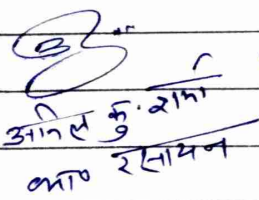 अनिल कु. शर्मा
व्या० रसायन